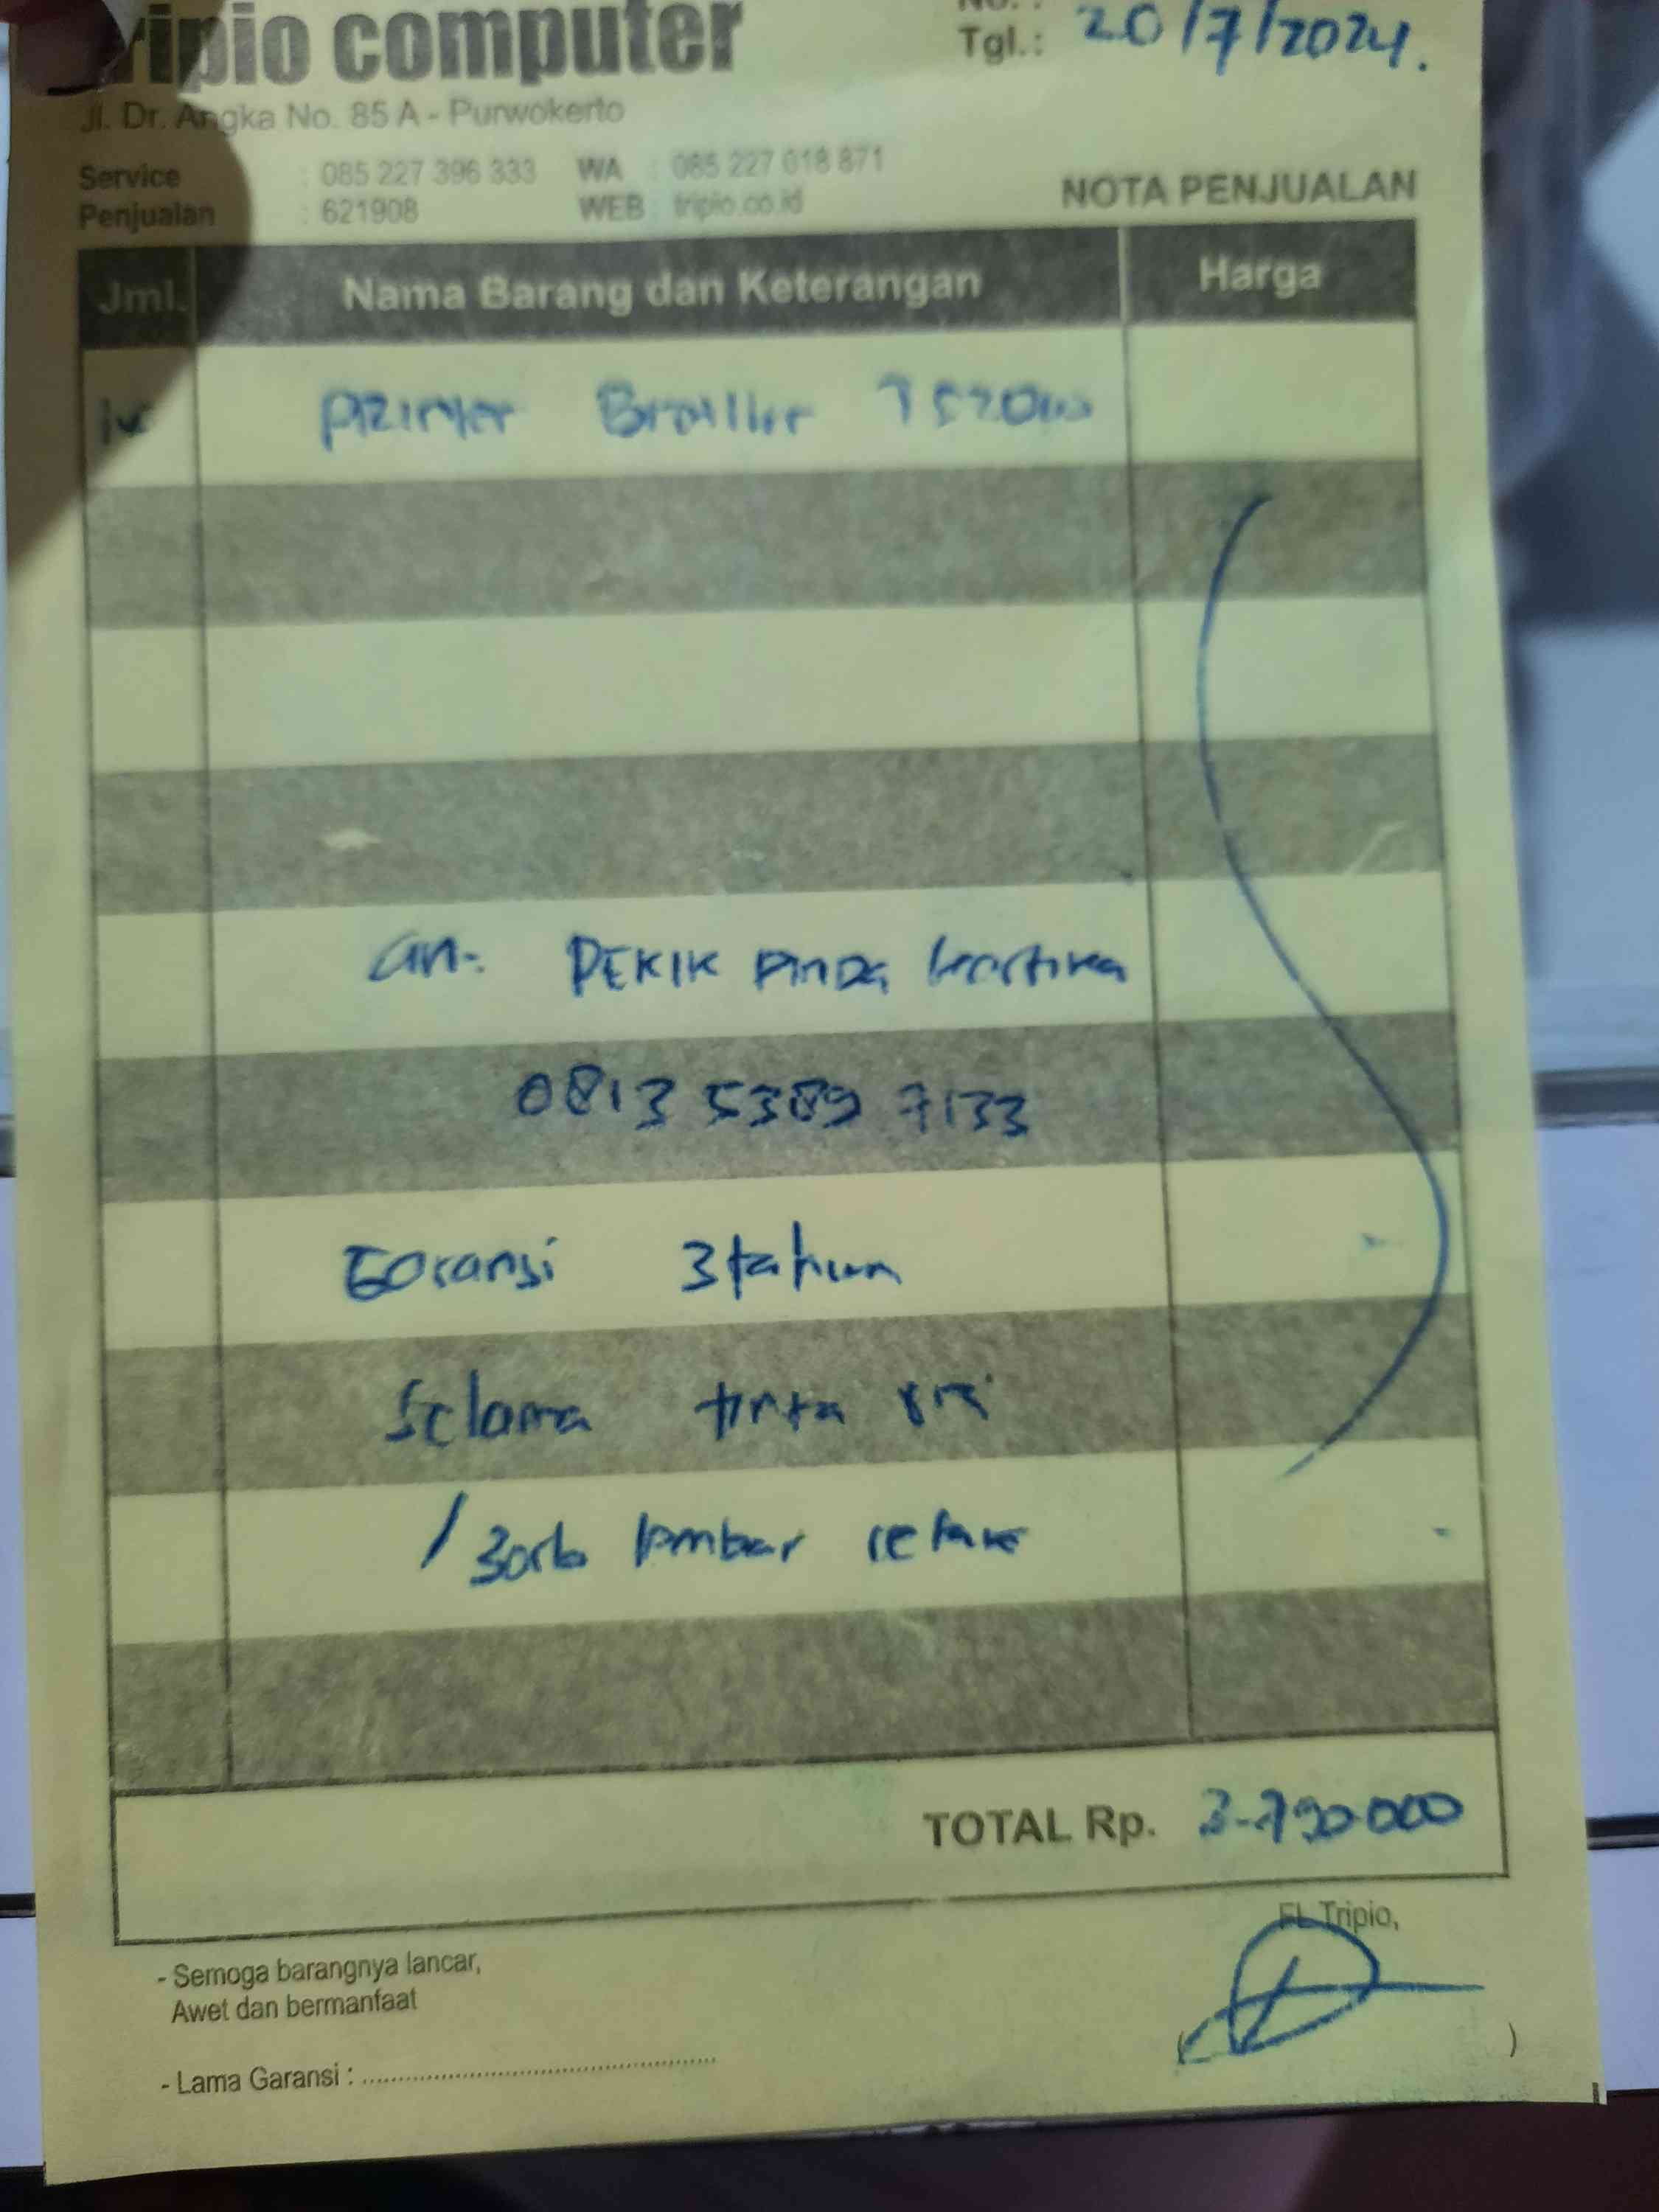 Tripio computer
No. :
Tgl.: 20/7/2024.
Jl. Dr. Angka No. 85 A - Purwokerto
Service : 085 227 396 333 WA : 085 227 018 871
Penjualan : 621908 WEB : tripio.co.id
NOTA PENJUALAN
Jml. Nama Barang dan Keterangan Harga
Printer
an. PEKIK
0813 5389 7133
Garansi 3 tahun
Selama tinta
/ lembar
TOTAL Rp. 3.790.000
FL Tripio,
- Semoga barangnya lancar,
Awet dan bermanfaat
( )
- Lama Garansi : ........................